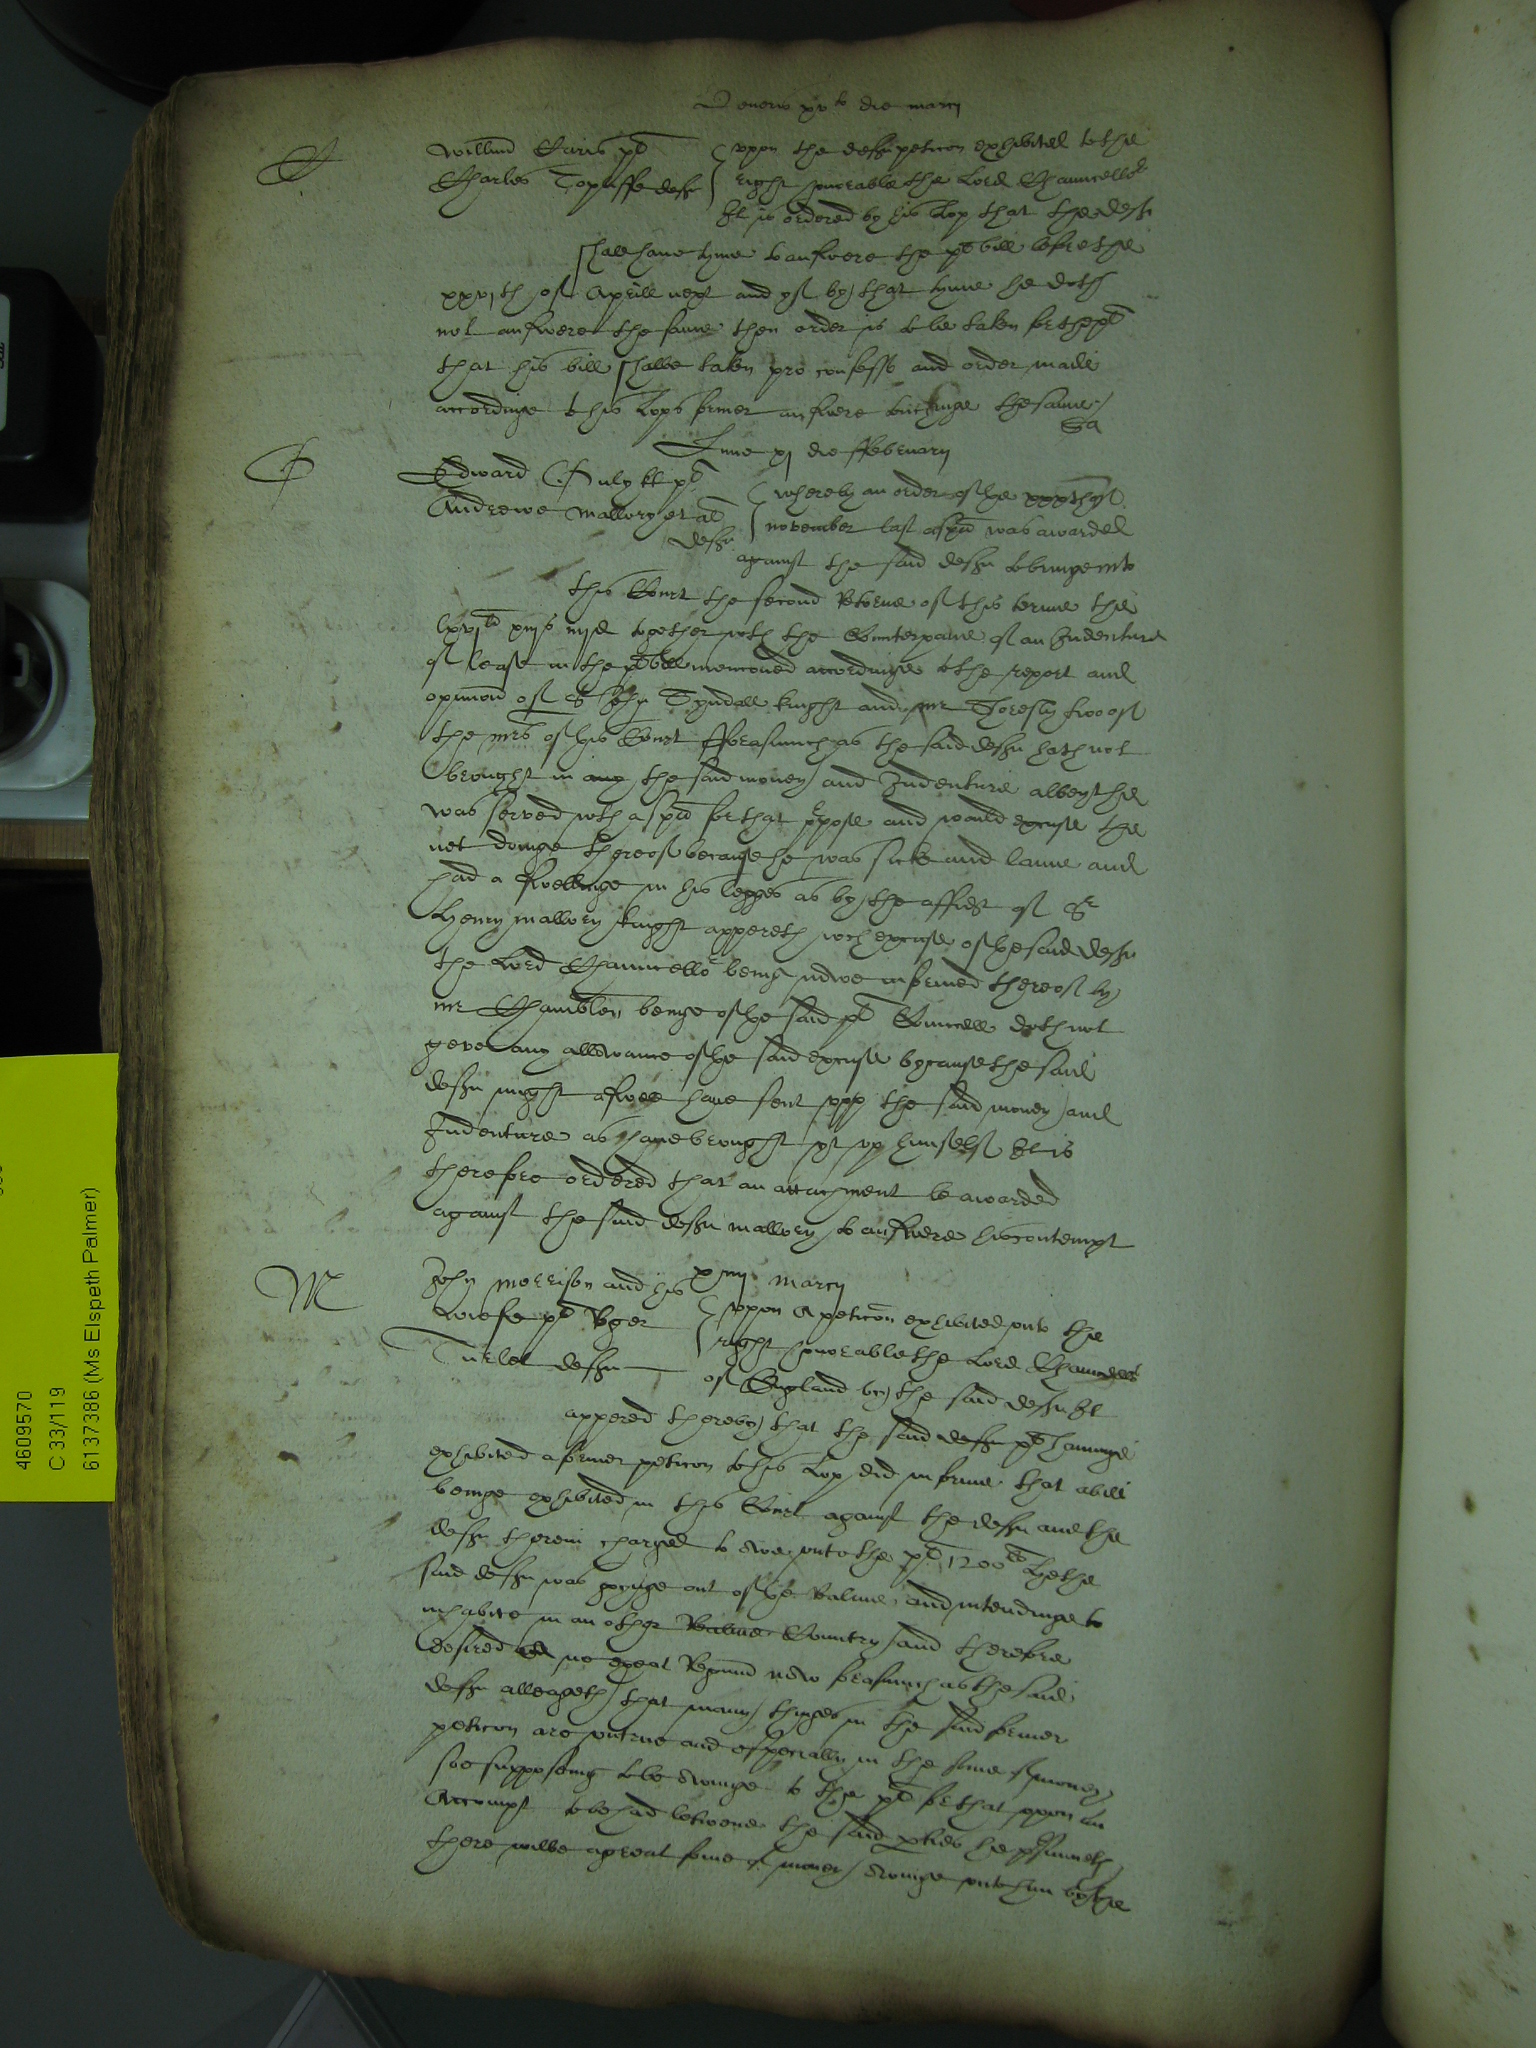 Veneris xv to die marcij
C
Willm̃ Caris pl
Charles Topcliffe deft
vppon the deftes peticon exhibited to the
right honorable the Lord Chauncellor
It is ordered by his Lop that the deft
shall haue tyme to answere the pl bill before the
xxvjth of Aprill next and yf by that tyme he doth
not answere the same then order is to be taken for the pl
that his bill shalbe taken pro confesso and order made
accordinge to his Lops former answere towchinge the same
Lune xj die ffebruarij
P
Edward kt pl
Andrewe Mallory et al
deft
whereby an order of the xxxth of
november last a spã was awarded
against the said deft to bringe into
this Court the second Retorne of this terme the
lxvjli xiijs iiijd together wth the Counterpane of an Indenture
of lease in the pl bill mencioned accordinge to the report and
opinion of Sr John Tyndall knight and mr Thoresby twoo of
the mrs of this Court fforasmuch as the said deft hath not
brought in any the said money and Indenture albeyt he
was served wth a spã for that ppose and would excuse the
not doinge thereof because he was sicke and lame and
had a swellinge in his legges as by the affidt of Sr
Henry Mallory knight appereth wch excuse of the said deft
the Lord Chauncellor being nowe informed thereof by
mr Chamblen beinge of the said pl Councell doth not
geve any allowance of the said excuse bycause the said
deft might aswell haue sent vpp the said money and
Indenture as haue brought yt vp himself It is
therefore ordered that an attachment be awarded
against the said deft Mallory to answere his contempt
xiiij marcij
M
John Morrison and his
wiefe pl Roger
Turlet deft
vppon A peticon exhibited vnto the
right honorable the Lord Chauncellor
of England by the said deft It
appered thereby that the said deft pl haueinge
exhibited a former peticon to his Lop did informe that a bill
beinge exhibited in this Court against the deft and the
deft therein charged to owe vnto the pl 1200li He the
said deft was goynge out of the Realme and intendinge to
inhabite in an other Realme Country and therefore
desired ne exeat Regnum now forasmuch as the said
deft alleageth that many thinges in the said former
peticon are vntrue and especially in the some of money
soe supposeing to be owinge to the pl for that vppon an
Accompt to be had betweene the said pties he psumeth
there wilbe a great some of money owinge vnto him by the
4609570
C 33/119
6137386 (Ms Elspeth Palmer)